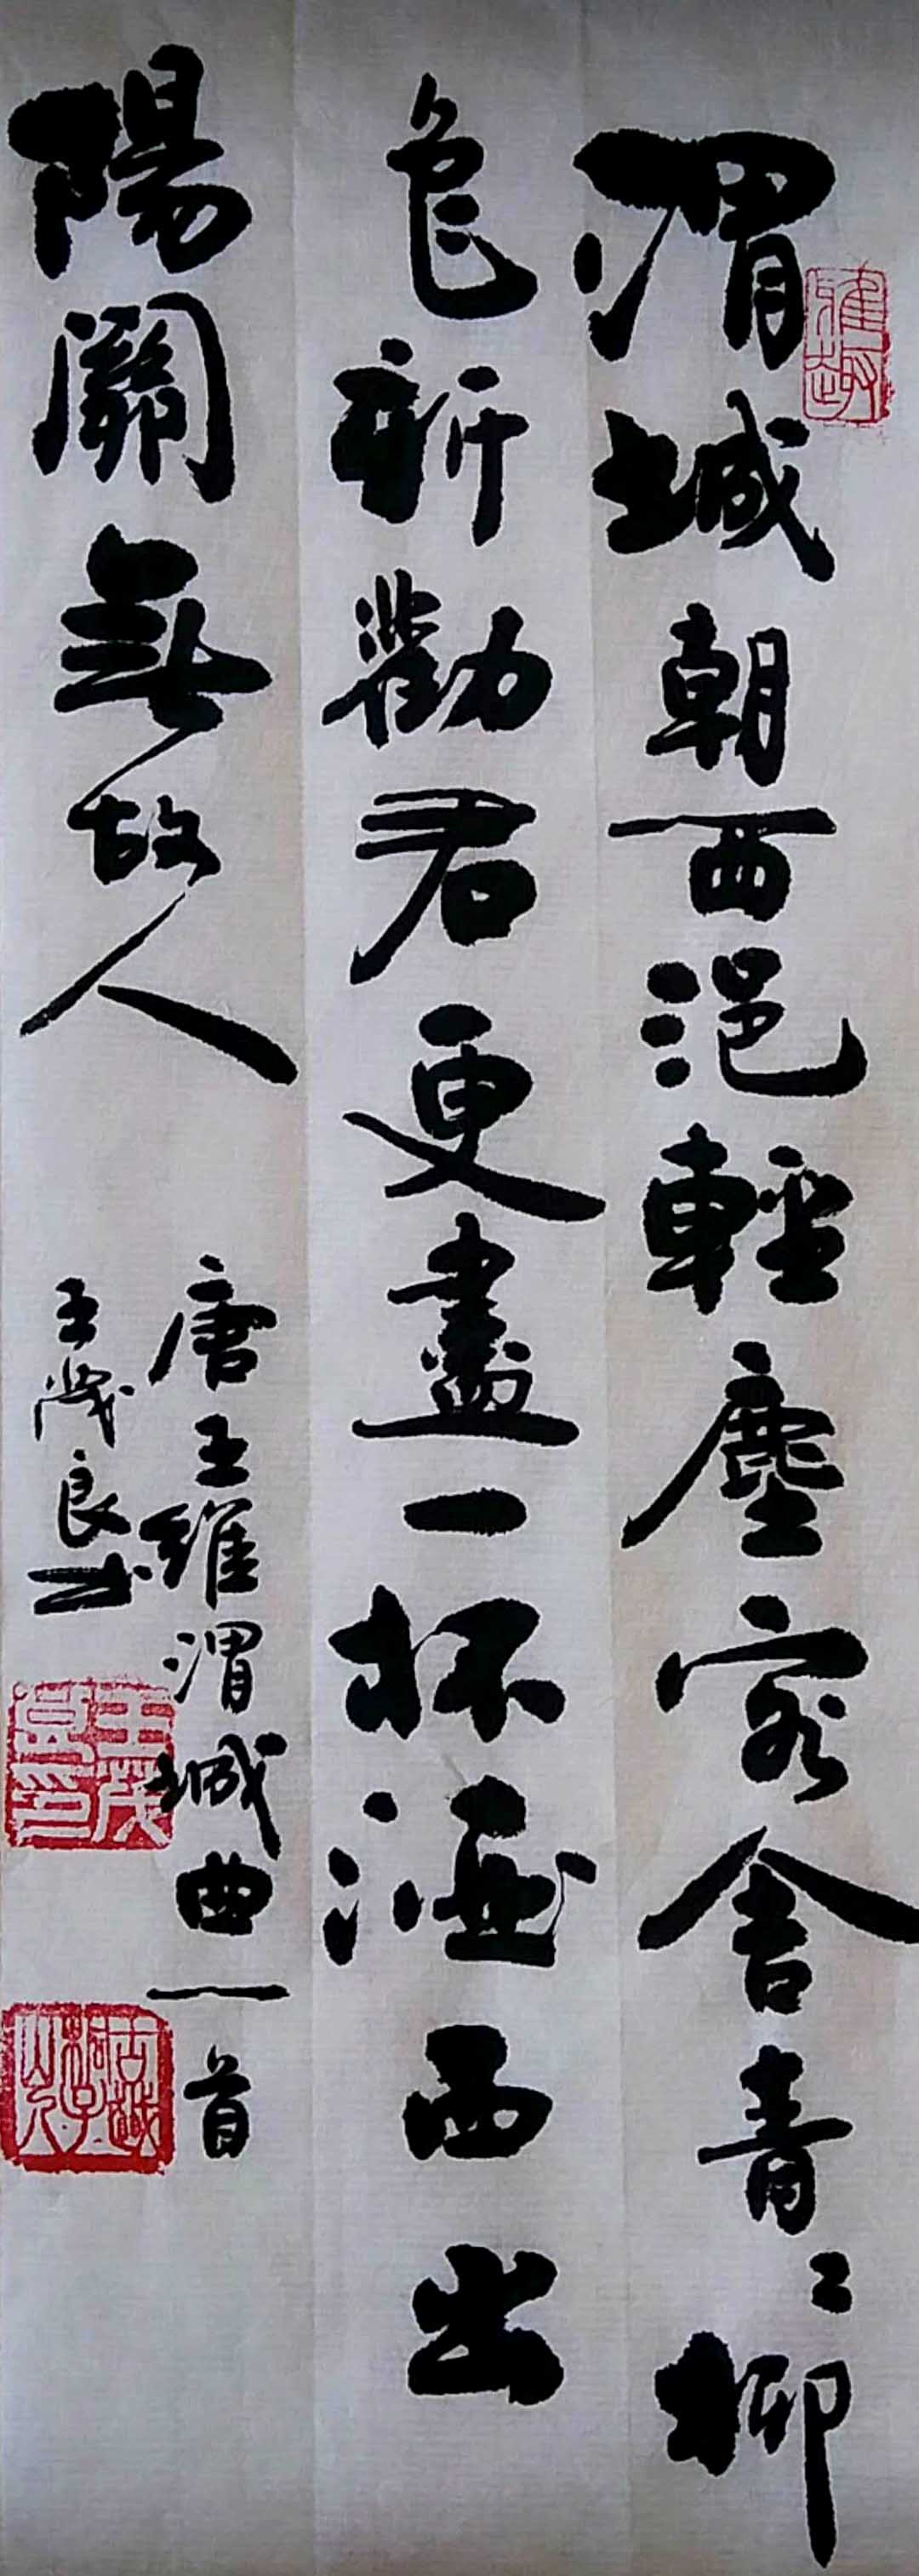 雅趣
渭城朝雨浥輕塵客舍青〻柳
色新勸君更盡一杯酒西出
陽關無故人
唐王維渭城曲一首
王茂良书
王茂良印